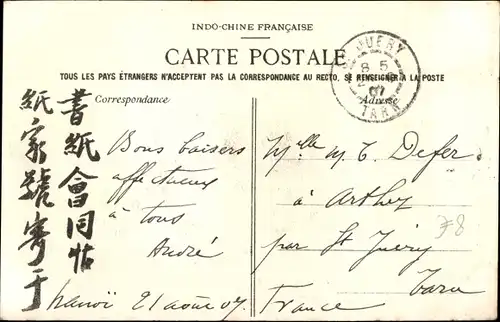 INDO-CHINE FRANÇAISE
CARTE POSTALE
TOUS LES PAYS ÉTRANGERS N'ACCEPTENT PAS LA CORRESPONDANCE AU RECTO, SE RENSEIGNER A LA POSTE
Correspondance
Adresse
JUERY
8 5
07
TARN
書紙會同帖
紙家號寄于
Bons baisers
affectueux
à tous
André
Hanoï 21 août 07
Mlle M. T. Defer
à Arthez
par St Juéry
Tarn
France